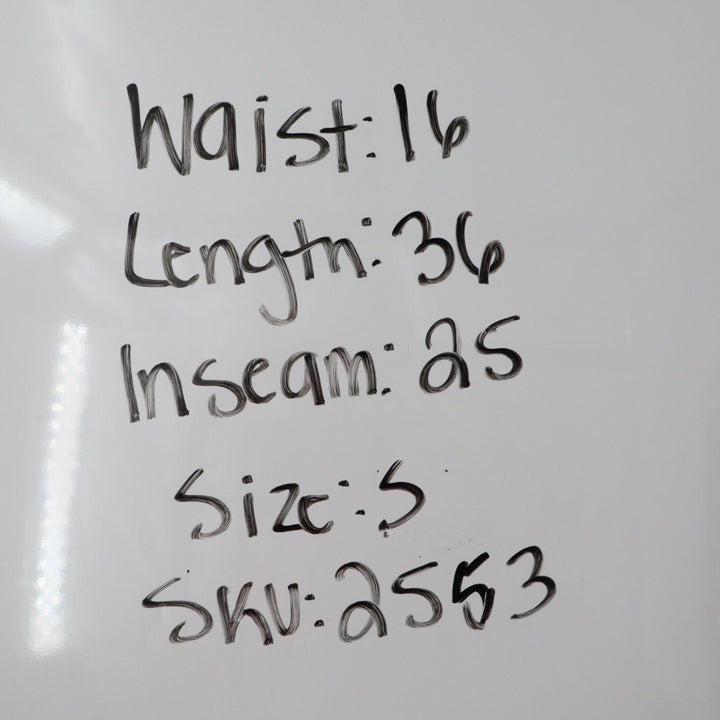 Waist: 16
Length: 36
Inseam: 25
Size: S
SKU: 2553